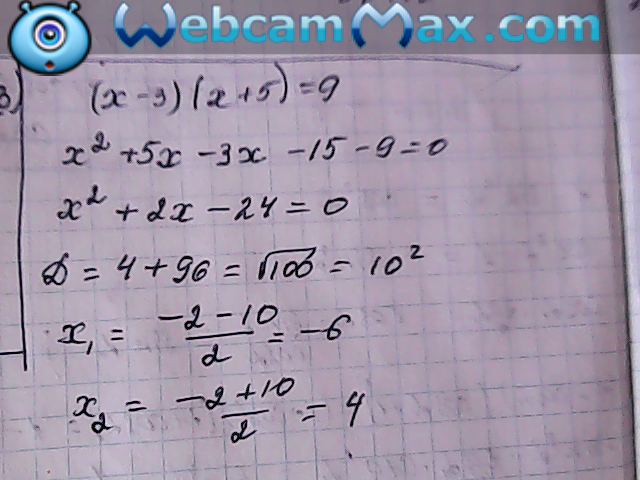 WebcamMax.com
3)
(x-3)(x+5)=9
x² +5x -3x -15 -9=0
x² + 2x - 24 = 0
D = 4 + 96 = √100 = 10²
x₁ = (-2-10)/2 = -6
x₂ = (-2+10)/2 = 4